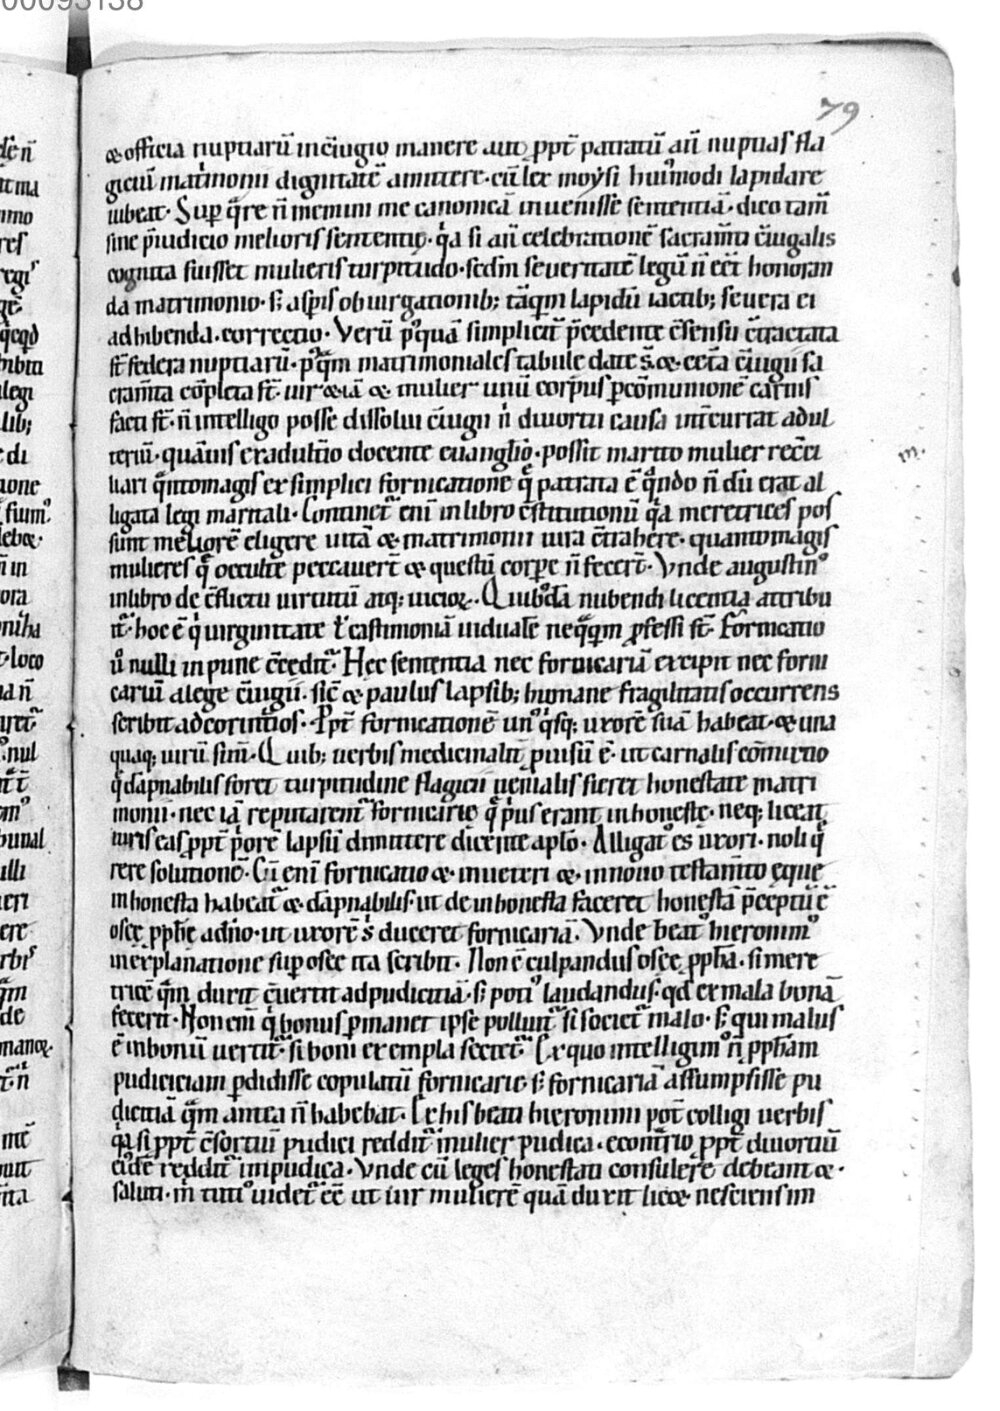 00093138
79
& officia nuptiarū in c̄iugio manere aut ꝓpt̄ patratū añ nuptias fla
giciū matⁱmonii dignitatē amittere· cū lex moẏsi huiꝰmodi lapidare
iubeat· Suꝑ q̄ re n̄ memini me canonicā inuenisse sententiā· dico tam̄
sine p̄iudicio melioris sententię· qⁱa si añ celebrationē sacram̄ti c̄iugalis
cognita fuisset mulieris turpitudo· scdm̄ seueritatē legū n̄ eēt honoran
da matrimonio· sꝫ asp̄is obiurgationibꝫ tāqͣm lapidū iactibꝫ seuera ei
adhibenda correctio· Verū pꝰquā simplicit̄ p̄cedente c̄sensu c̄tractata
st̄ federa nuptiarū· pꝰqͣm matrimoniales tabule date s̄t· & cet̄a c̄iugii sa
cram̄ta cōpleta st̄· uir &iā & mulier unū corpus ꝑ cōmunionē carnis
facti st̄· n̄ intelligo posse dissolui c̄iugiū nⁱ diuortii causa int̄currat adul
teriū· quāuis ex adultⁱo docente euangłio· possit marito mulier recc̄i
liari qͣntomagis ex simplici fornicatione q̄ patrata ē qͣndo n̄dū erat al
ligata legi maritali· Continet᷑ eni᷑ in libro c̄stitutionū qⁱa meretrices pos
sunt meliorē eligere uitā & matrimonii iura c̄trahere· quantomagis
mulieres q̄ occulte peccauer̄t & questū corpe n̄ fecer̄t· Vnde augustinꝰ
in libro de c̄flictu uirtutū atqꝫ uicioꝝ· Quibꝰdā nubendi licentia attribu
it᷑· hoc ē qⁱ uirginitate ł castimoniā uidualē neqͣqͣm ꝓfessi st̄· Fornicatio
ū nulli inpune c̄cedit᷑· Hec sententia nec fornicariā excipit nec forni
cariū a lege c̄iugii· sic̄ & paulus lapsibꝫ humane fragilitatis occurrens
scribit ad corintⁱos· Ꝓpt̄ fornicationē unꝰqⁱsqꝫ uxorē suā habeat· & una
quaqꝫ uirū suū· Quibꝫ uerbis medicinalit̄ ꝓuisū ē· ut carnalis cōmixtio
q̄ dāpnabilis foret turpitudine flagicii uenialis fieret honestate matri
monii· nec iā reputarent᷑ fornicarię q̄ pⁱus erant inhoneste· neqꝫ liceat
uiris eas ꝓpt̄ pⁱorē lapsū dimittere dicente apło· Alligatꝰ es uxori· noli q̄
rere solutionē· Cū eni᷑ fornicatio & in ueteri & in nouo testam̄to eque
inhonesta habeat᷑ & dāpnabilis· ut de inhonesta faceret honestā p̄ceptū ē
osee ꝓpħe a dn̄o· ut uxorē sⁱ duceret fornicariā· Vnde beatꝰ hieronimꝰ
in explanatione suꝑ osee ita scribit· Non ē culpandus osee ꝓpħa· si mere
tricē qͣm duxit c̄uertit ad pudicitiā· sꝫ potiꝰ laudandus· qd̄ ex mala bonā
fecerit· Non eni᷑ qⁱ bonus ꝑmanet ipse polluit᷑ si societ᷑ malo· sꝫ qui malus
ē in bonū uertit᷑· si boni exempla sectet᷑· Ex quo intelligimꝰ n̄ ꝓpħam
pudiciciam ꝑdidisse copulatū fornicarie· sꝫ fornicariā assumpsisse pu
dicitiā qͣm antea n̄ habebat· Ex his beati hieronimi pot̄ colligi uerbis
qⁱa si ꝓpt̄ c̄sortiū pudici reddit᷑ mulier pudica· econtͣrio ꝓpt̄ diuortiū
eiꝰdē reddit᷑ inpudica· Vnde cū leges honestati consulere debeant &
saluti· m̄ tutiꝰ uidet᷑ eē ut uir mulierē quā duxit lic& nesciens im